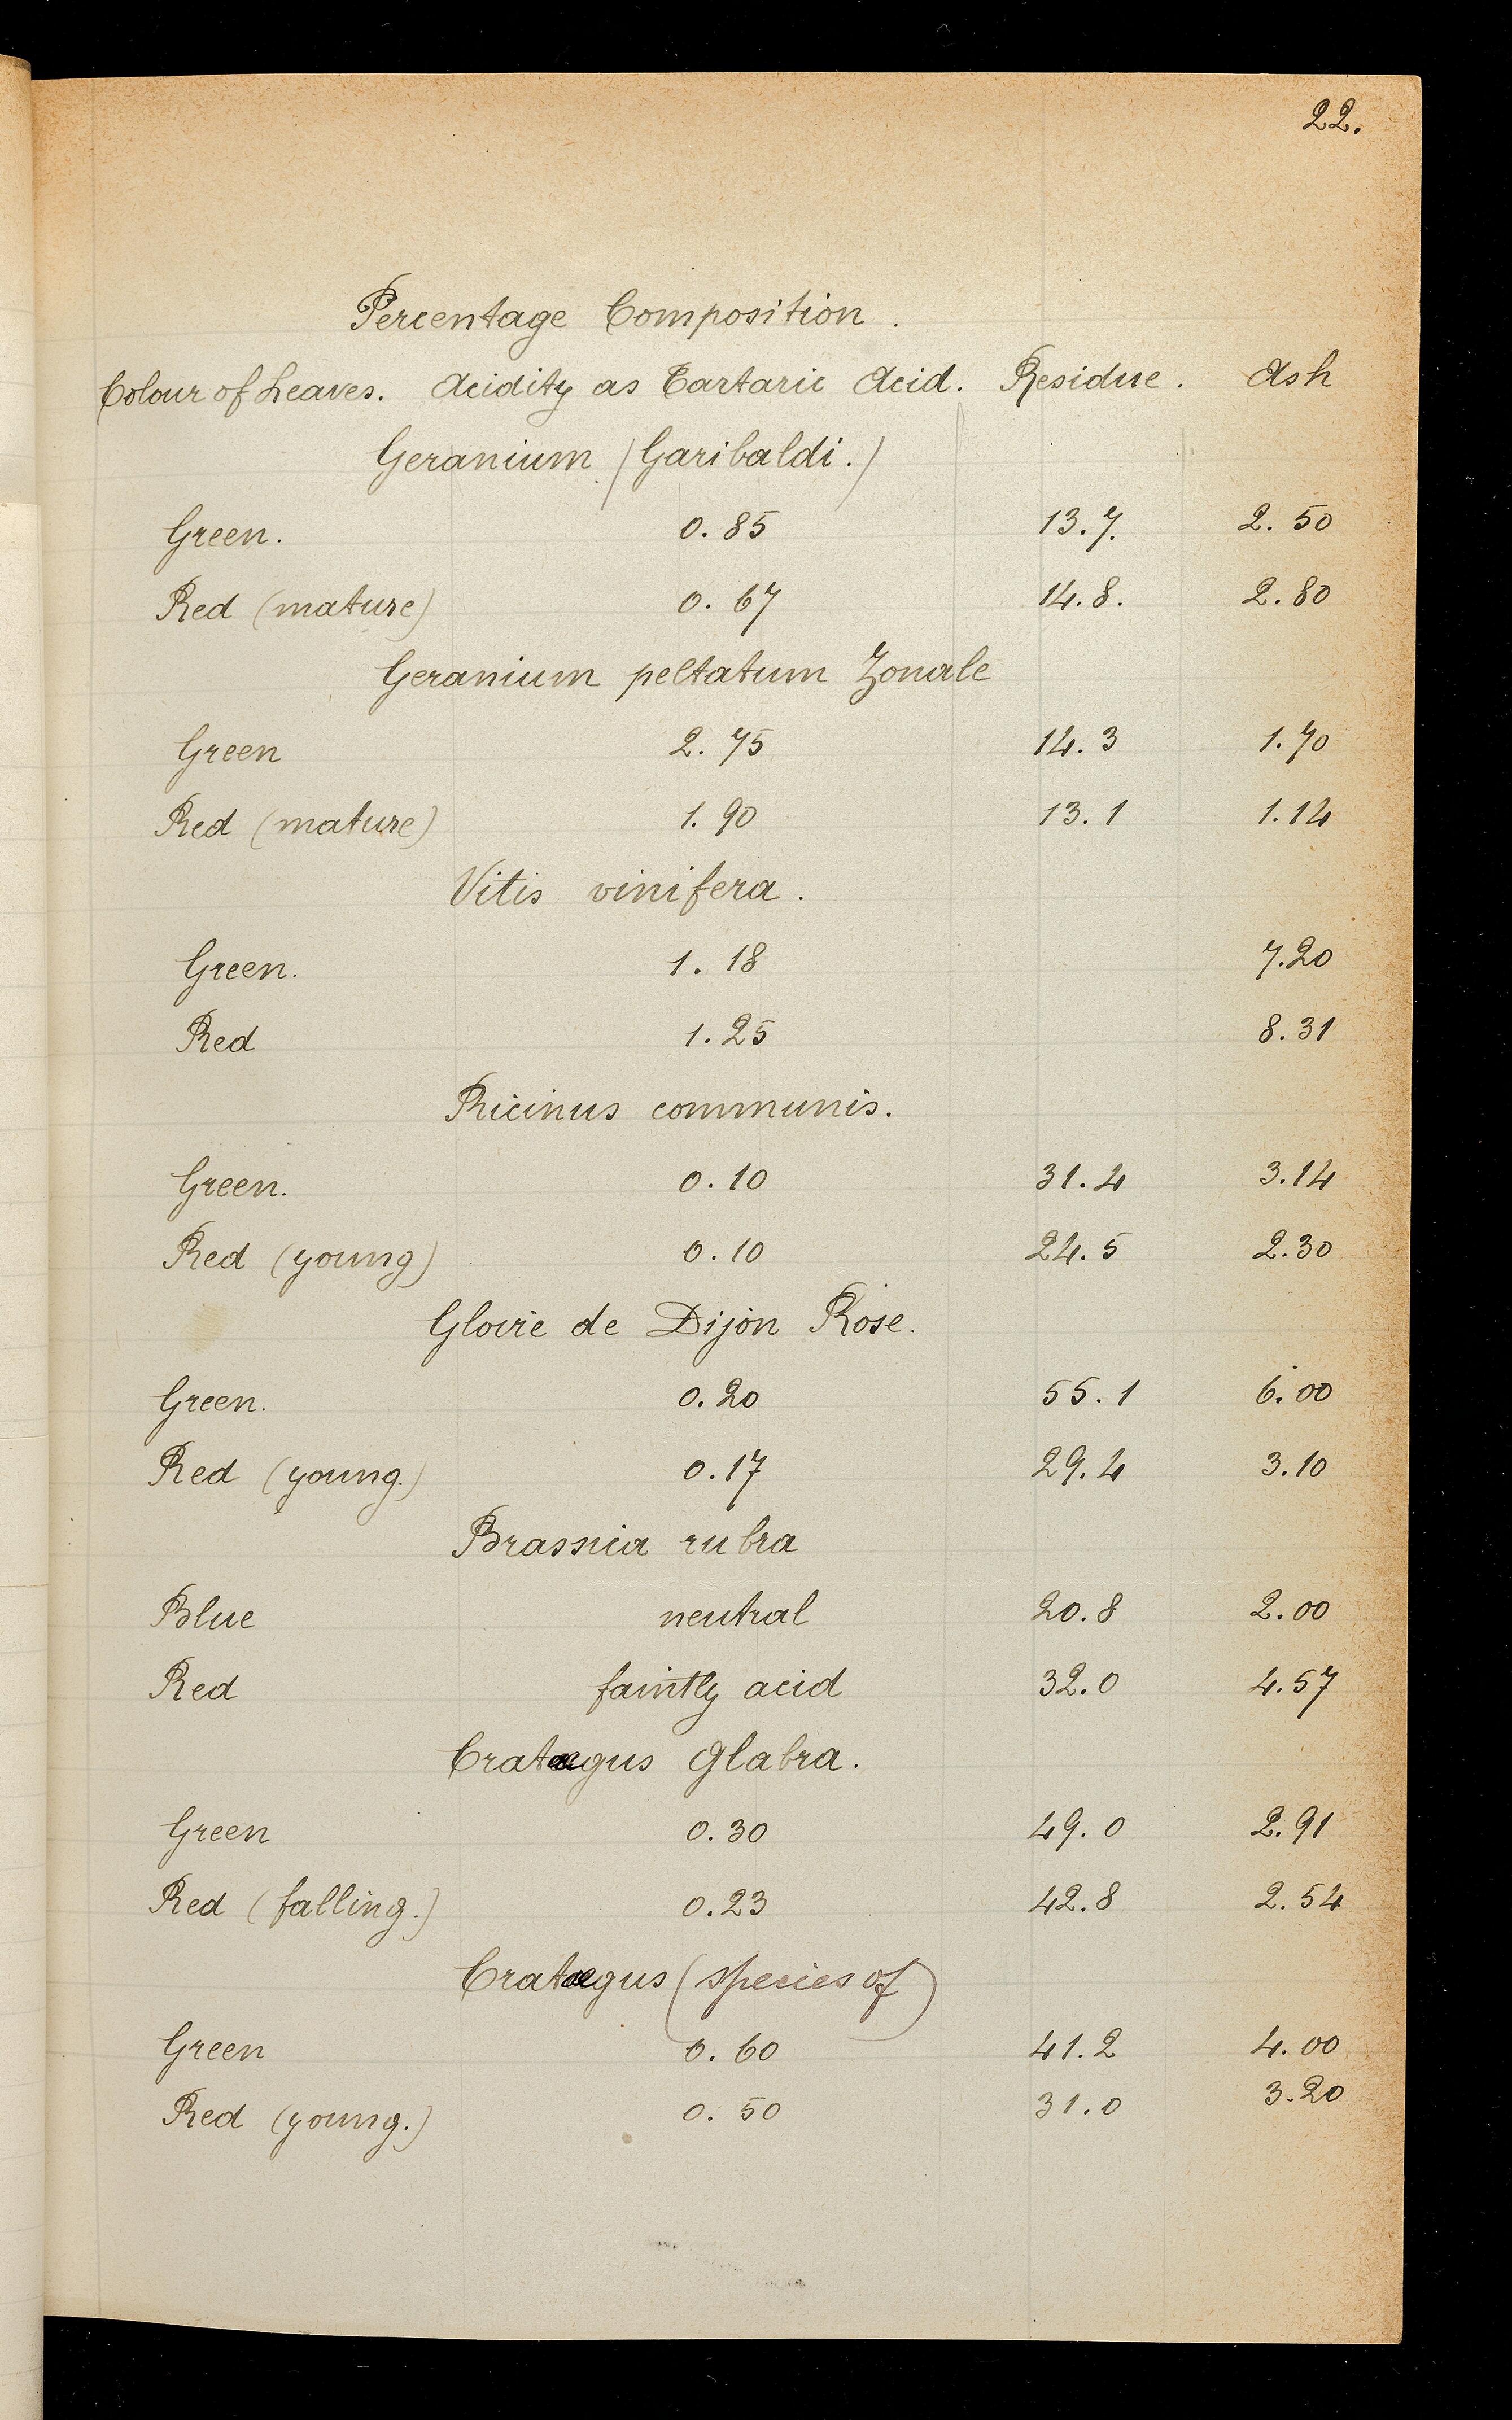 22.
Percentage Composition.
Colour of Leaves. Acidity as Tartaric Acid. Residue. Ash
Geranium (Garibaldi.)
Green. 0.85 13.7. 2.50
Red (mature) 0.67 14.8. 2.80
Geranium peltatum Zonale
Green 2.75 14.3 1.70
Red (mature) 1.90 13.1 1.14
Vitis vinifera.
Green. 1.18 7.20
Red 1.25 8.31
Ricinus communis.
Green. 0.10 31.4 3.14
Red (young) 0.10 24.5 2.30
Gloire de Dijon Rose.
Green. 0.20 55.1 6.00
Red (young.) 0.17 29.4 3.10
Brassica rubra
Blue neutral 20.8 2.00
Red faintly acid 32.0 4.57
Cratægus Glabra.
Green 0.30 49.0 2.91
Red (falling.) 0.23 42.8 2.54
Cratægus (species of)
Green 0.60 41.2 4.00
Red (young.) 0.50 31.0 3.20